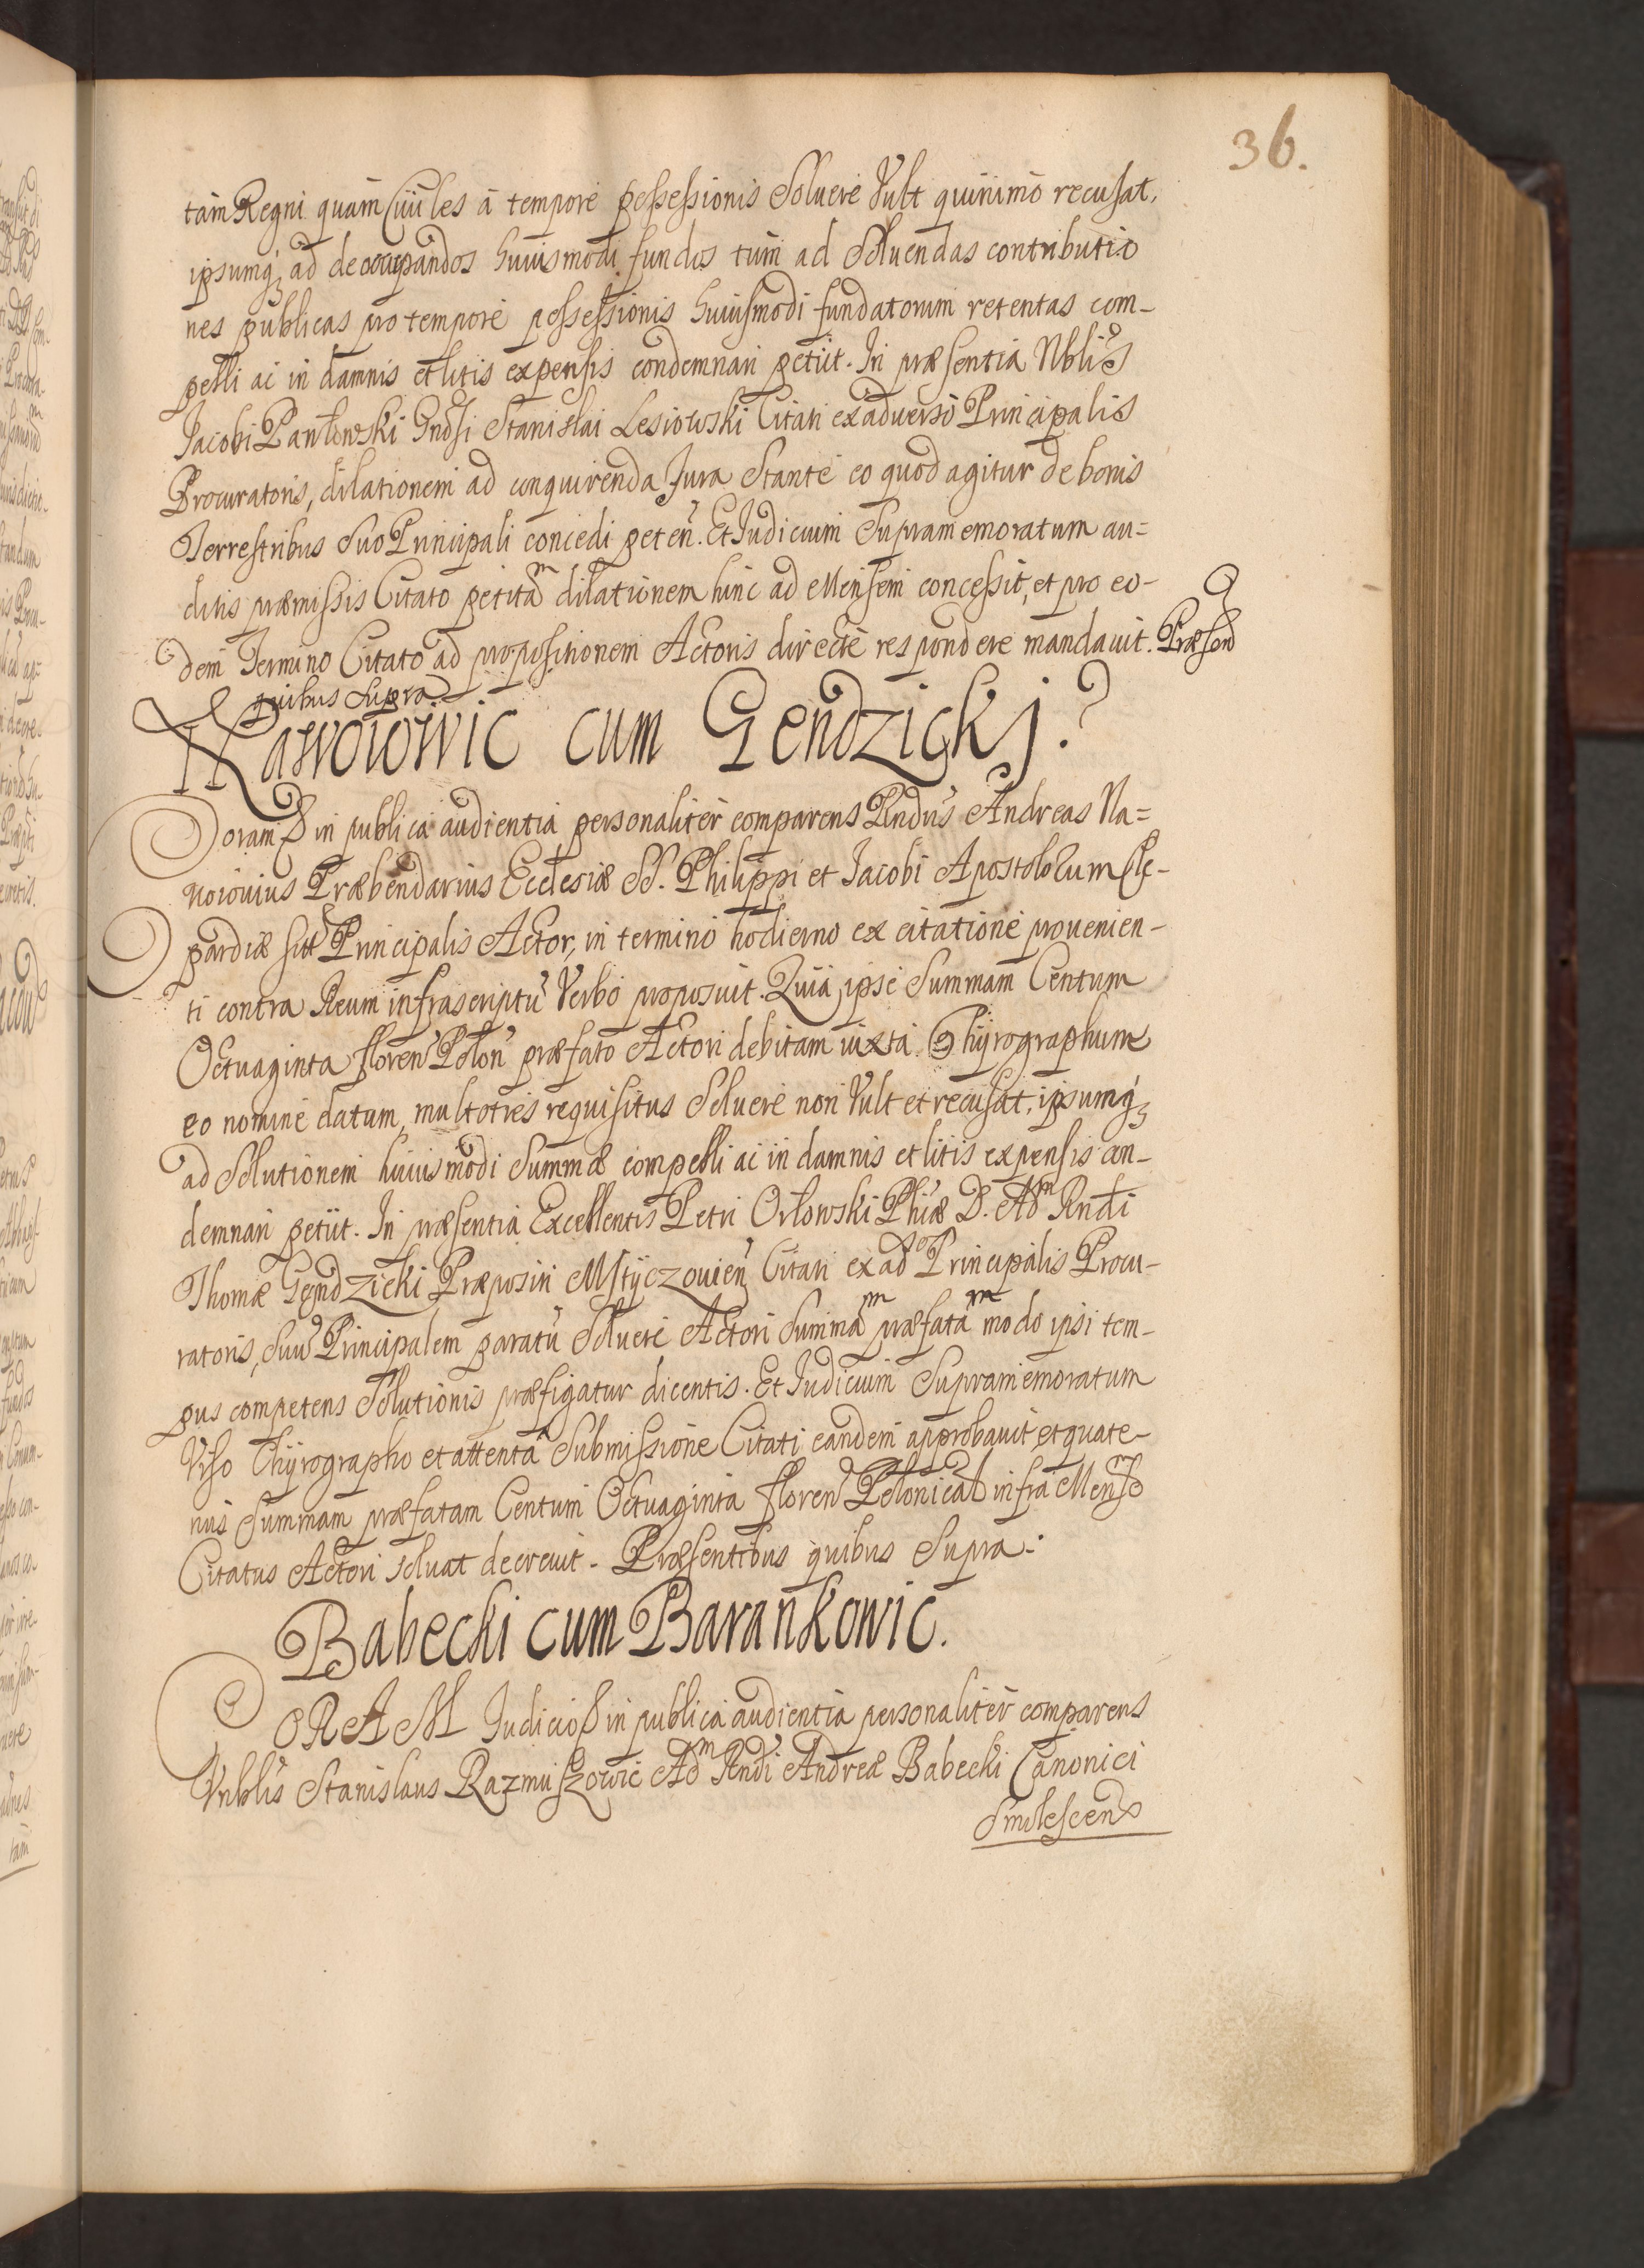 36.
tam Regni quam Ciuiles á tempore possessionis Soluere Vult quinimo recusat,
ipsumq; ad deoccupandos huiusmodi fundos tum ad Soluendas contributio
nes publicas pro tempore possessionis huiusmodi fundatorum retentas com-
pelli ac in damnis et litis expensis condemnari petiit. In præsentia Nblis
Jacobi Pawłowski Gndsi Stanislai Lesiowski Citati ex aduerso Principalis
Procuratoris, dilationem ad conquirenda Jura Stante eo quod agitur de bonis
Terrestribus Suo Principali concedi peten. Et Judicium Supramemoratum au=
ditis præmissis Citato petitam dilationem hinc ad Mensem concessit, et pro eo-
dem Termino Citato ad propositionem Actoris directe respondere mandauit. Præsen
quibus Supra
Nawoiowic cum Gendzickj.
Coram in publica audientia personaliter comparens Rndus Andreas Na=
uoiouius Præbendarius Ecclesiæ SS. Philippi et Jacobi Apostolorum Cle-
pardiæ sitæ Principalis Actor, in termino hodierno ex citatione prouenien-
ti contra Reum infrascriptu Verbo proposuit. Quia ipse Summam Centum
Octuaginta floren Polon præfato Actori debitam iuxta Chyrographum
eo nomine datum, multoties requisitus Soluere non Vult et recusat, ipsumq;
ad Solutionem huiusmodi Summæ compelli ac in damnis et litis expensis con-
demnari petiit. In præsentia Excellentis Petri Orłowski Phiæ D. Adm Rndi
Thomæ Gendzicki Præpositi Mstyczouien Citati ex adso Principalis Procu-
ratoris, Suu Principalem paratu Soluere Actori Summam præfatam modo ipsi tem-
pus competens Solutionis præfigatur dicentis. Et Judicium Supramemoratum
Viso Chyrographo et attenta Submissione Citati eandem approbauit, et quate-
nus Summam præfatam Centum Octuaginta floren Polonical infra Mense
Citatus Actori soluat decreuit. Præsentibus quibus Supra.
Babecki cum Barankowic.
CORAM Judicio in publica audientia personaliter comparens
Nblis Stanislaus Razmuszowic Adm Rndi Andreæ Babecki Canonici
Smolescen